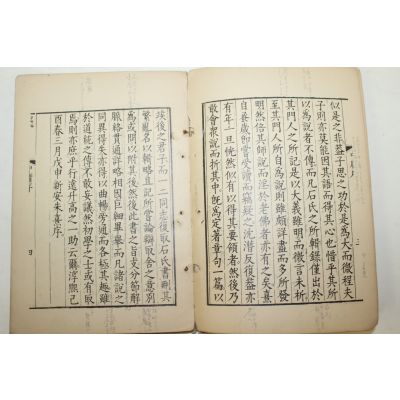 似是之非蓋子思之功於是為大而微程夫
子則亦莫能因其語而得其心也惜乎其所
以為說者不傳而凡石氏之所輯錄僅出於
其門人之所記是以大義雖明而微言未析
至其門人所自為說則雖頗詳盡而多所發
明然倍其師說而淫於老佛者亦有之矣熹
自蚤歲即嘗受讀而竊疑之沈潛反復蓋亦
有年一旦恍然似有以得其要領者然後乃
敢會眾說而折其中既為定著章句一篇以
竢後之君子而一二同志復取石氏書刪其
繁亂名以輯略且記所嘗論辯取舍之意別
為或問以附其後然後此書之旨支分節解
脈絡貫通詳略相因巨細畢舉而凡諸說之
同異得失亦得以曲暢旁通而各極其趣雖
於道統之傳不敢妄議然初學之士或有取
焉則亦庶乎行遠升高之一助云爾淳熙己
酉春三月戊申新安朱熹序